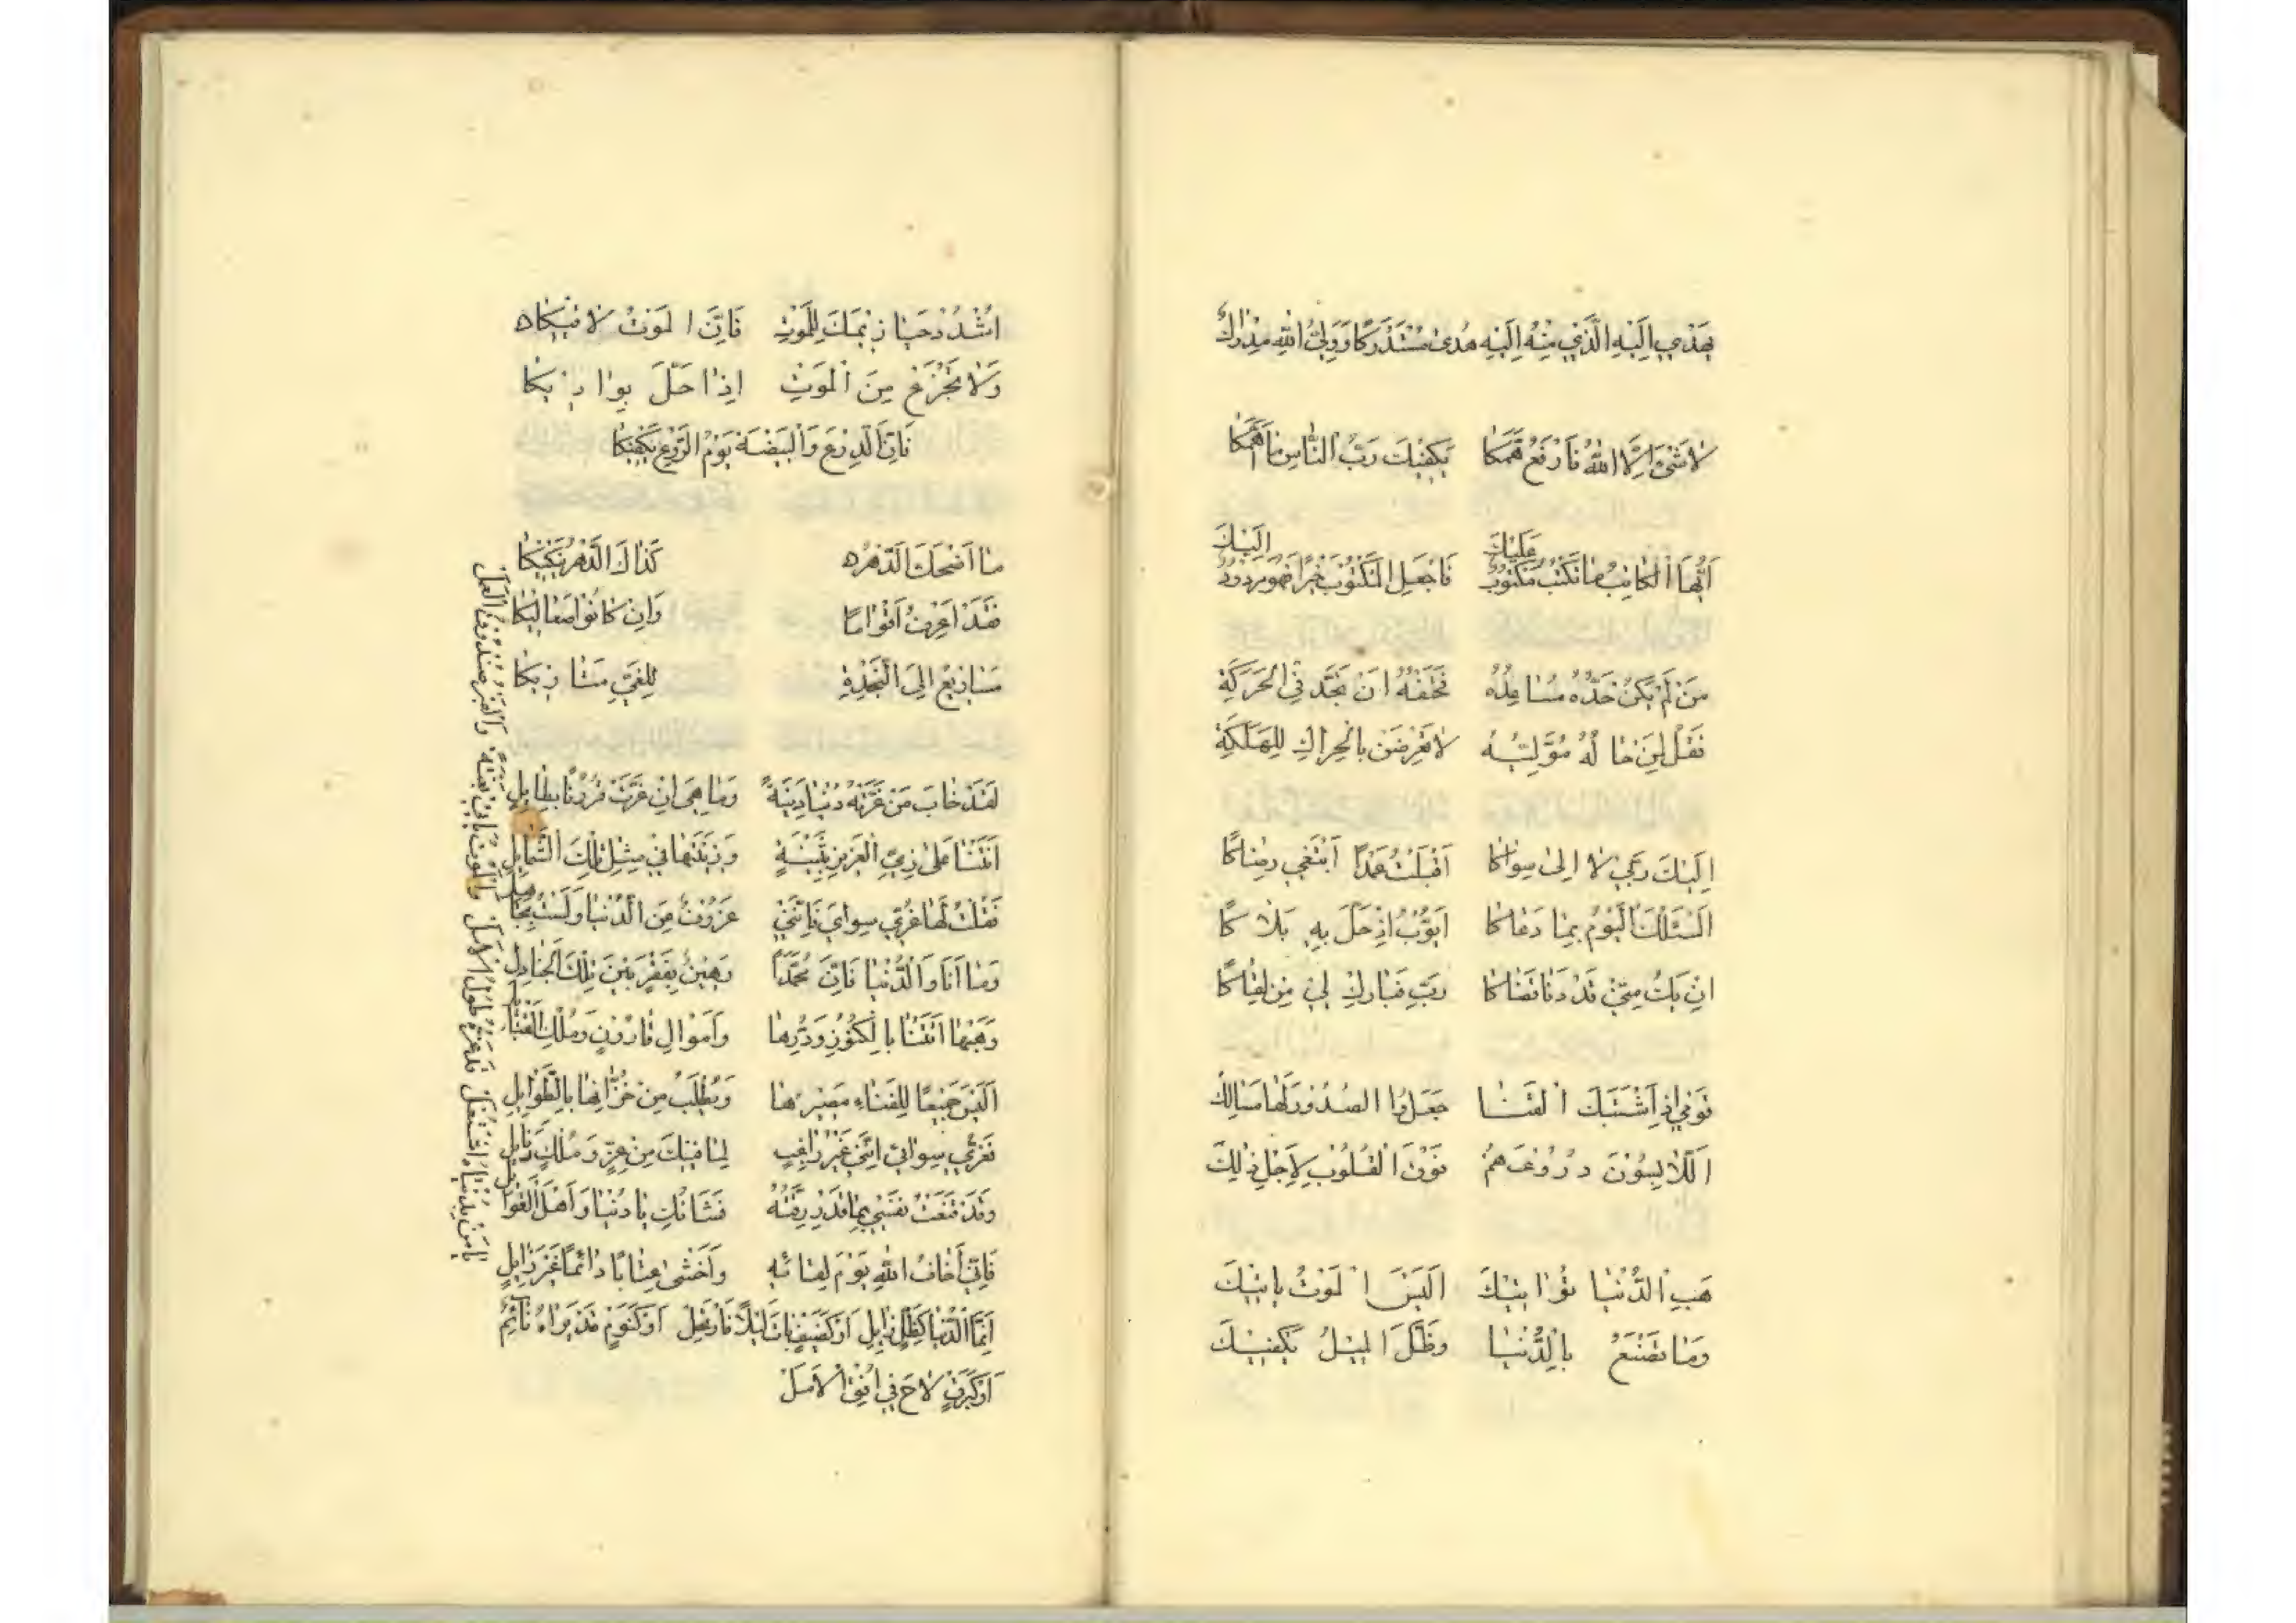 يَهْدِي اِلَيْهِ الَّذِي مِنْهُ اِلَيْهِ هُدىً مُسْتَدْرَكًا وَوَلِيُّ اللهِ مِدْرَاكُ
لَا شَيْءَ اِلَّا اللهُ فَارْفَعْ هَمَّكَا يَكْفِيكَ رَبُّ النَّاسِ مَا اَهَمَّكَا
عَلَيْكَ اِلَيْكَ
اَيُّهَا الْكَاتِبُ مَا تَكْتُبُ مَكْتُوبٌ فَاجْعَلِ الْمَكْتُوبَ خَيْرًا فَهُوَ مَرْدُودٌ
مَنْ لَمْ يَكُنْ جَدُّهُ مُسَاعِدُهُ فَحَتْفُهُ اَنْ يَجِدَّ فِي الْحَرَكَةِ
فَقُلْ لِمَنْ حَالُهُ مُوَلِّيَةٌ لَا تَعْرِضَنْ بِالْحِرَاكِ لِلْهَلَكَةِ
اِلَيْكَ رَبِّي لَا اِلَى سِوَاكَا اَقْبَلْتُ عَمْدًا اَبْتَغِي رِضَاكَا
اَسْئَلُكَ الْيَوْمَ بِمَا دَعَاكَا اَيُّوبُ اِذْ حَلَّ بِهِ بَلَاكَا
اِنْ يَكُ مِنِّي قَدْ دَنَا قَضَاكَا رَبِّ فَبَارِكْ لِي فِي لِقَاكَا
قَوْمِي اِذَا اشْتَبَكَ الْقَنَا جَعَلُوا الصُّدُورَ لَهَا مَسَالِكْ
اَللَّابِسُونَ دُرُوعَهُمْ فَوْقَ الْقُلُوبِ لِاَجْلِ ذٰلِكْ
هَبِ الدُّنْيَا تُوَاتِيكَ اَلَيْسَ الْمَوْتُ يَاْتِيكَ
وَمَا تَصْنَعُ بِالدُّنْيَا وَظِلُّ الْمِيلِ يَكْفِيكَ
اُشْدُدْ حَيَازِيمَكَ لِلْمَوْتِ فَاِنَّ الْمَوْتَ لَاقِيكَا
وَلَا تَجْزَعْ مِنَ الْمَوْتِ اِذَا حَلَّ بِوَادِيكَا
فَاِنَّ الدِّرْعَ وَالْبَيْضَةَ يَوْمَ الرَّوْعِ يَكْفِيكَا
مَا اَضْحَكَكَ الدَّهْرُ كَذَاكَ الدَّهْرُ يُبْكِيكَا
فَقَدْ اَعْرِفُ اَقْوَامًا وَاِنْ كَانُوا صَعَالِيكَا
مَسَارِيعُ اِلَى النَّجْدَةِ لِلْغَيِّ مَتَارِيكَا
لَقَدْ خَابَ مَنْ غَرَّتْهُ دُنْيَا دَنِيَّةٌ وَمَا هِيَ اِنْ غَرَّتْ قُرُونًا بِطَائِلِ
اَتَتْنَا عَلَى زِيِّ الْعَزِيزِ بُثَيْنَةٍ وَزِينَتُهَا فِي مِثْلِ تِلْكَ الشَّمَائِلِ
فَقُلْتُ لَهَا غُرِّي سِوَايَ فَاِنَّنِي عَزُوفٌ مِنَ الدُّنْيَا وَلَسْتُ بِجَاهِلِ
وَمَا اَنَا وَالدُّنْيَا فَاِنَّ مُحَمَّدًا رَهِينٌ بِقَفْرٍ بَيْنَ تِلْكَ الْجَنَادِلِ
وَهَبْهَا اَتَتْنَا بِالْكُنُوزِ وَدُرِّهَا وَاَمْوَالِ قَارُونٍ وَمُلْكِ الْقَبَائِلِ
اَلَيْسَ جَمِيعًا لِلْفَنَاءِ مَصِيرُهَا وَيُطْلَبُ مِنْ خُزَّانِهَا بِالطَّوَائِلِ
فَغُرِّي سِوَائِي اِنَّنِي غَيْرُ رَاغِبٍ لِمَا فِيكَ مِنْ عِزٍّ وَمُلْكٍ وَنَائِلِ
وَقَدْ قَنَعَتْ نَفْسِي بِمَا قَدْ رُزِقْتُهُ فَشَانُكِ يَا دُنْيَا وَاَهْلَ الْغَوَائِلِ
فَاِنِّي اَخَافُ اللهَ يَوْمَ لِقَائِهِ وَاَخْشَى عِتَابًا دَائِمًا غَيْرَ زَائِلِ
اِنَّمَا الدُّنْيَا كَظِلٍّ زَائِلٍ اَوْ كَضَيْفٍ بَاتَ لَيْلًا فَارْتَحَلْ اَوْ كَنَوْمٍ قَدْ يَرَاهُ نَائِمٌ
اَوْ كَبَرْقٍ لَاحَ فِي اُفُقِ الْاَمَلْ
يَا مَنْ بِدُنْيَاهُ اشْتَغَلْ قَدْ غَرَّهُ طُولُ الْاَمَلْ وَالْمَوْتُ يَاْتِي بَغْتَةً وَالْقَبْرُ صُنْدُوقُ الْعَمَلْ